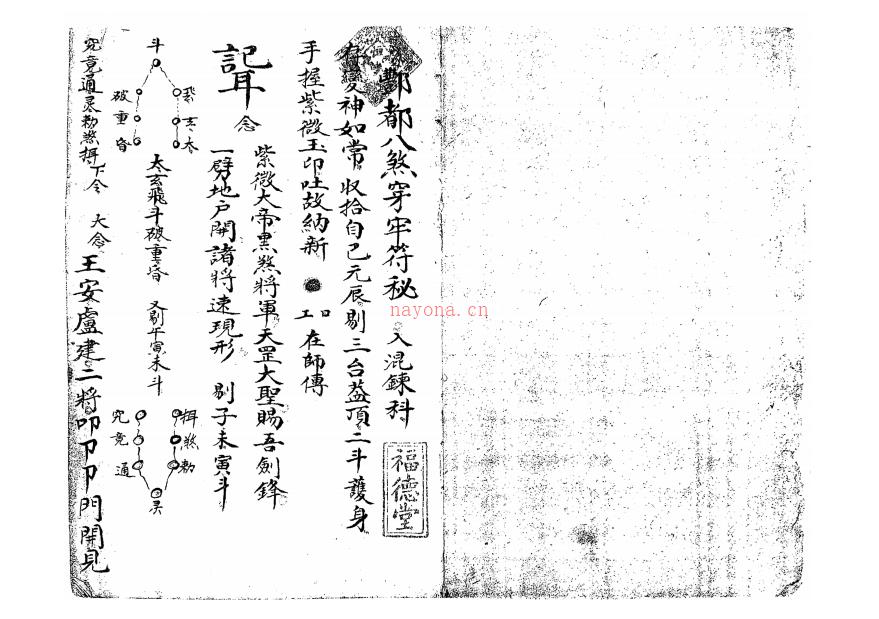 酆都八煞穿牢符秘 入混鍊科
福德堂
存變神如常收拾自己元辰剔三台蓋頂二斗護身
手握紫微玉印吐故納新
口工在師傳
念
紫微大帝黑煞將軍天罡大聖賜吾劍鋒
一劈地户開諸將速現形 剔子未寅斗
斗
紫玄太
破重昏
太玄飛斗破重昏 又剔午寅未斗
究竟通
灵
究竟通灵勅煞摄下令 大念
王安盧建二將叩卩卩門開見
nayona.cn